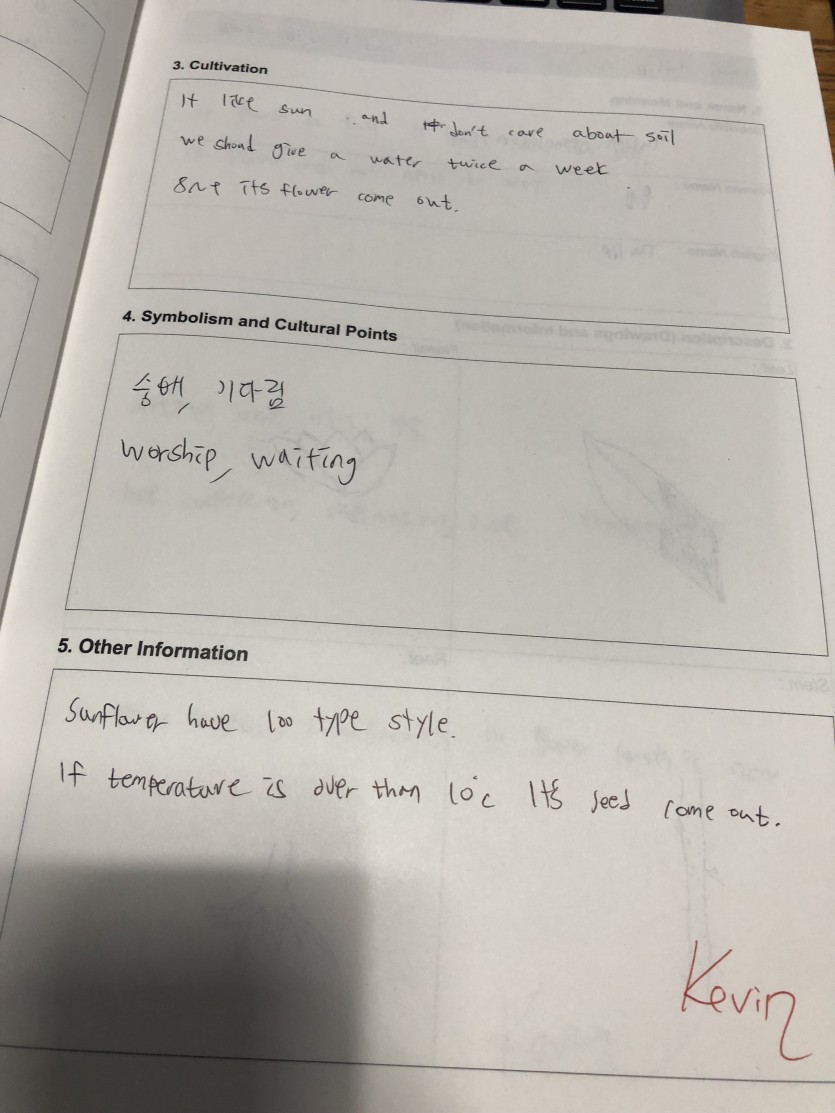 3. Cultivation
It like sun and don't care about soil
we should give a water twice a week
its flower come out.
4. Symbolism and Cultural Points
숭배, 기다림
worship, waiting
5. Other Information
Sunflower have 100 type style.
If temperature is over than 10°c It's seed come out.
Kevin